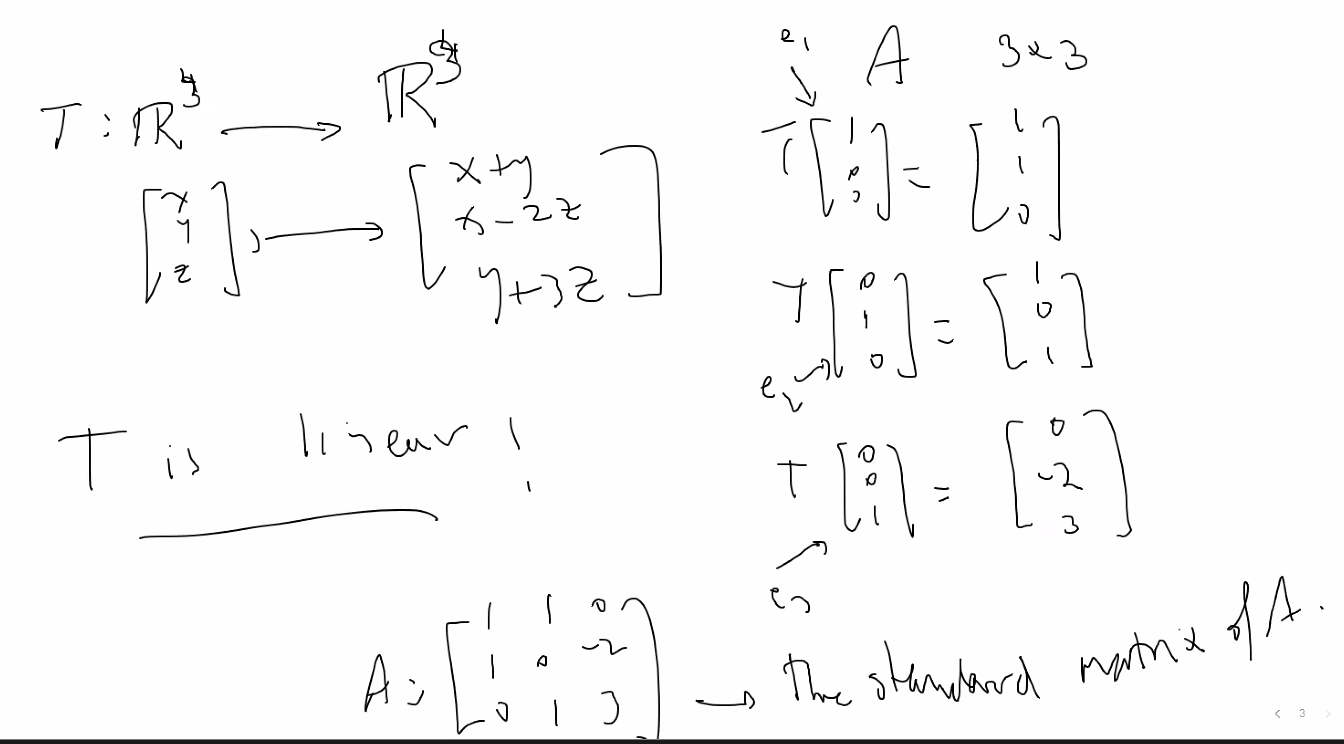 T : ℝ³ ⟶ ℝ³
[x y z] ⟶ [x+y x-2z y+3z]
T is linear !
e₁ A 3×3
T [1 0 0] = [1 1 0]
T [0 1 0] = [1 0 1]
e₂
T [0 0 1] = [0 -2 3]
e₃
A = [1 1 0
1 0 -2
0 1 3] → The standard matrix of A.
< 3 >